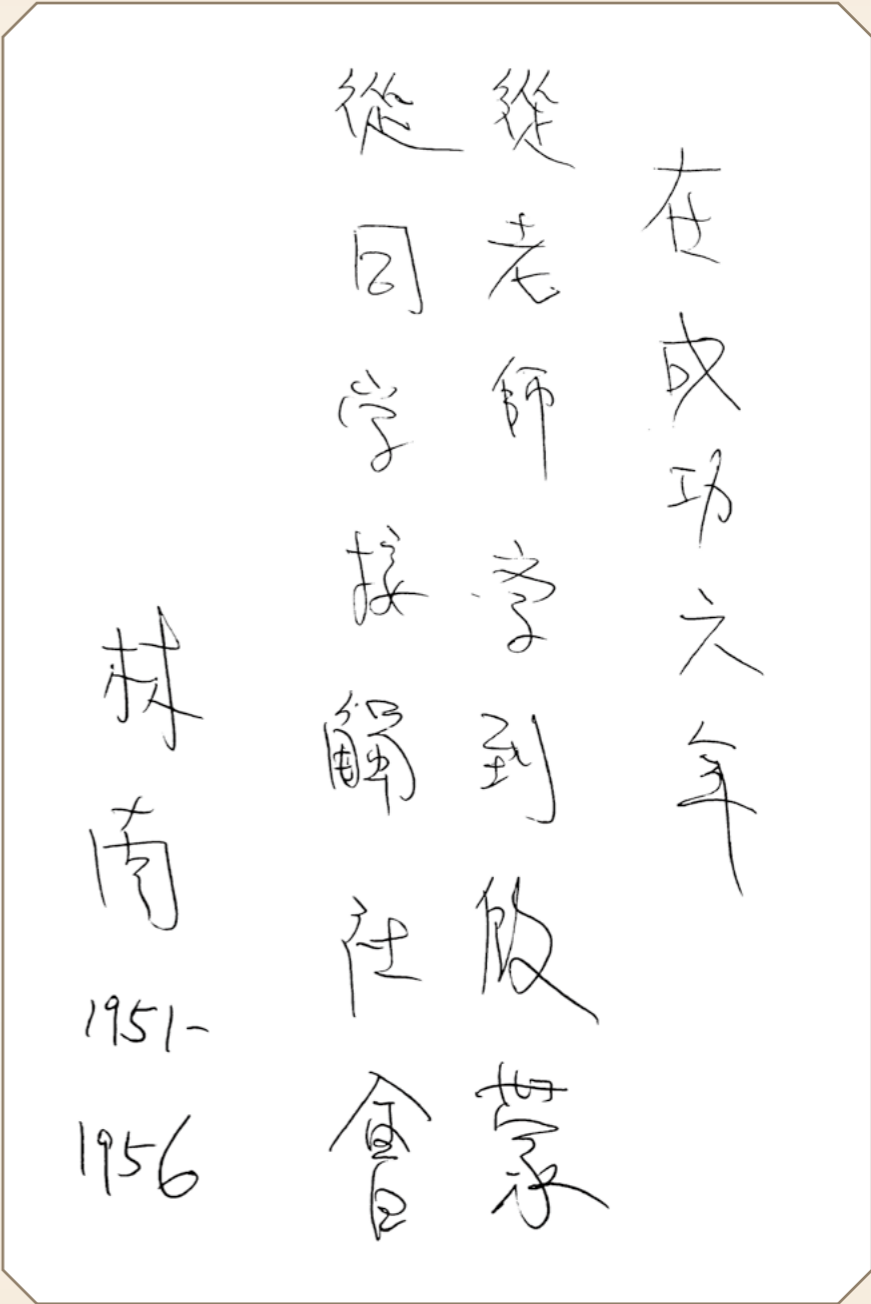 在成功六年
從老師学到啟蒙
從同学接觸社會
林南
1951-
1956